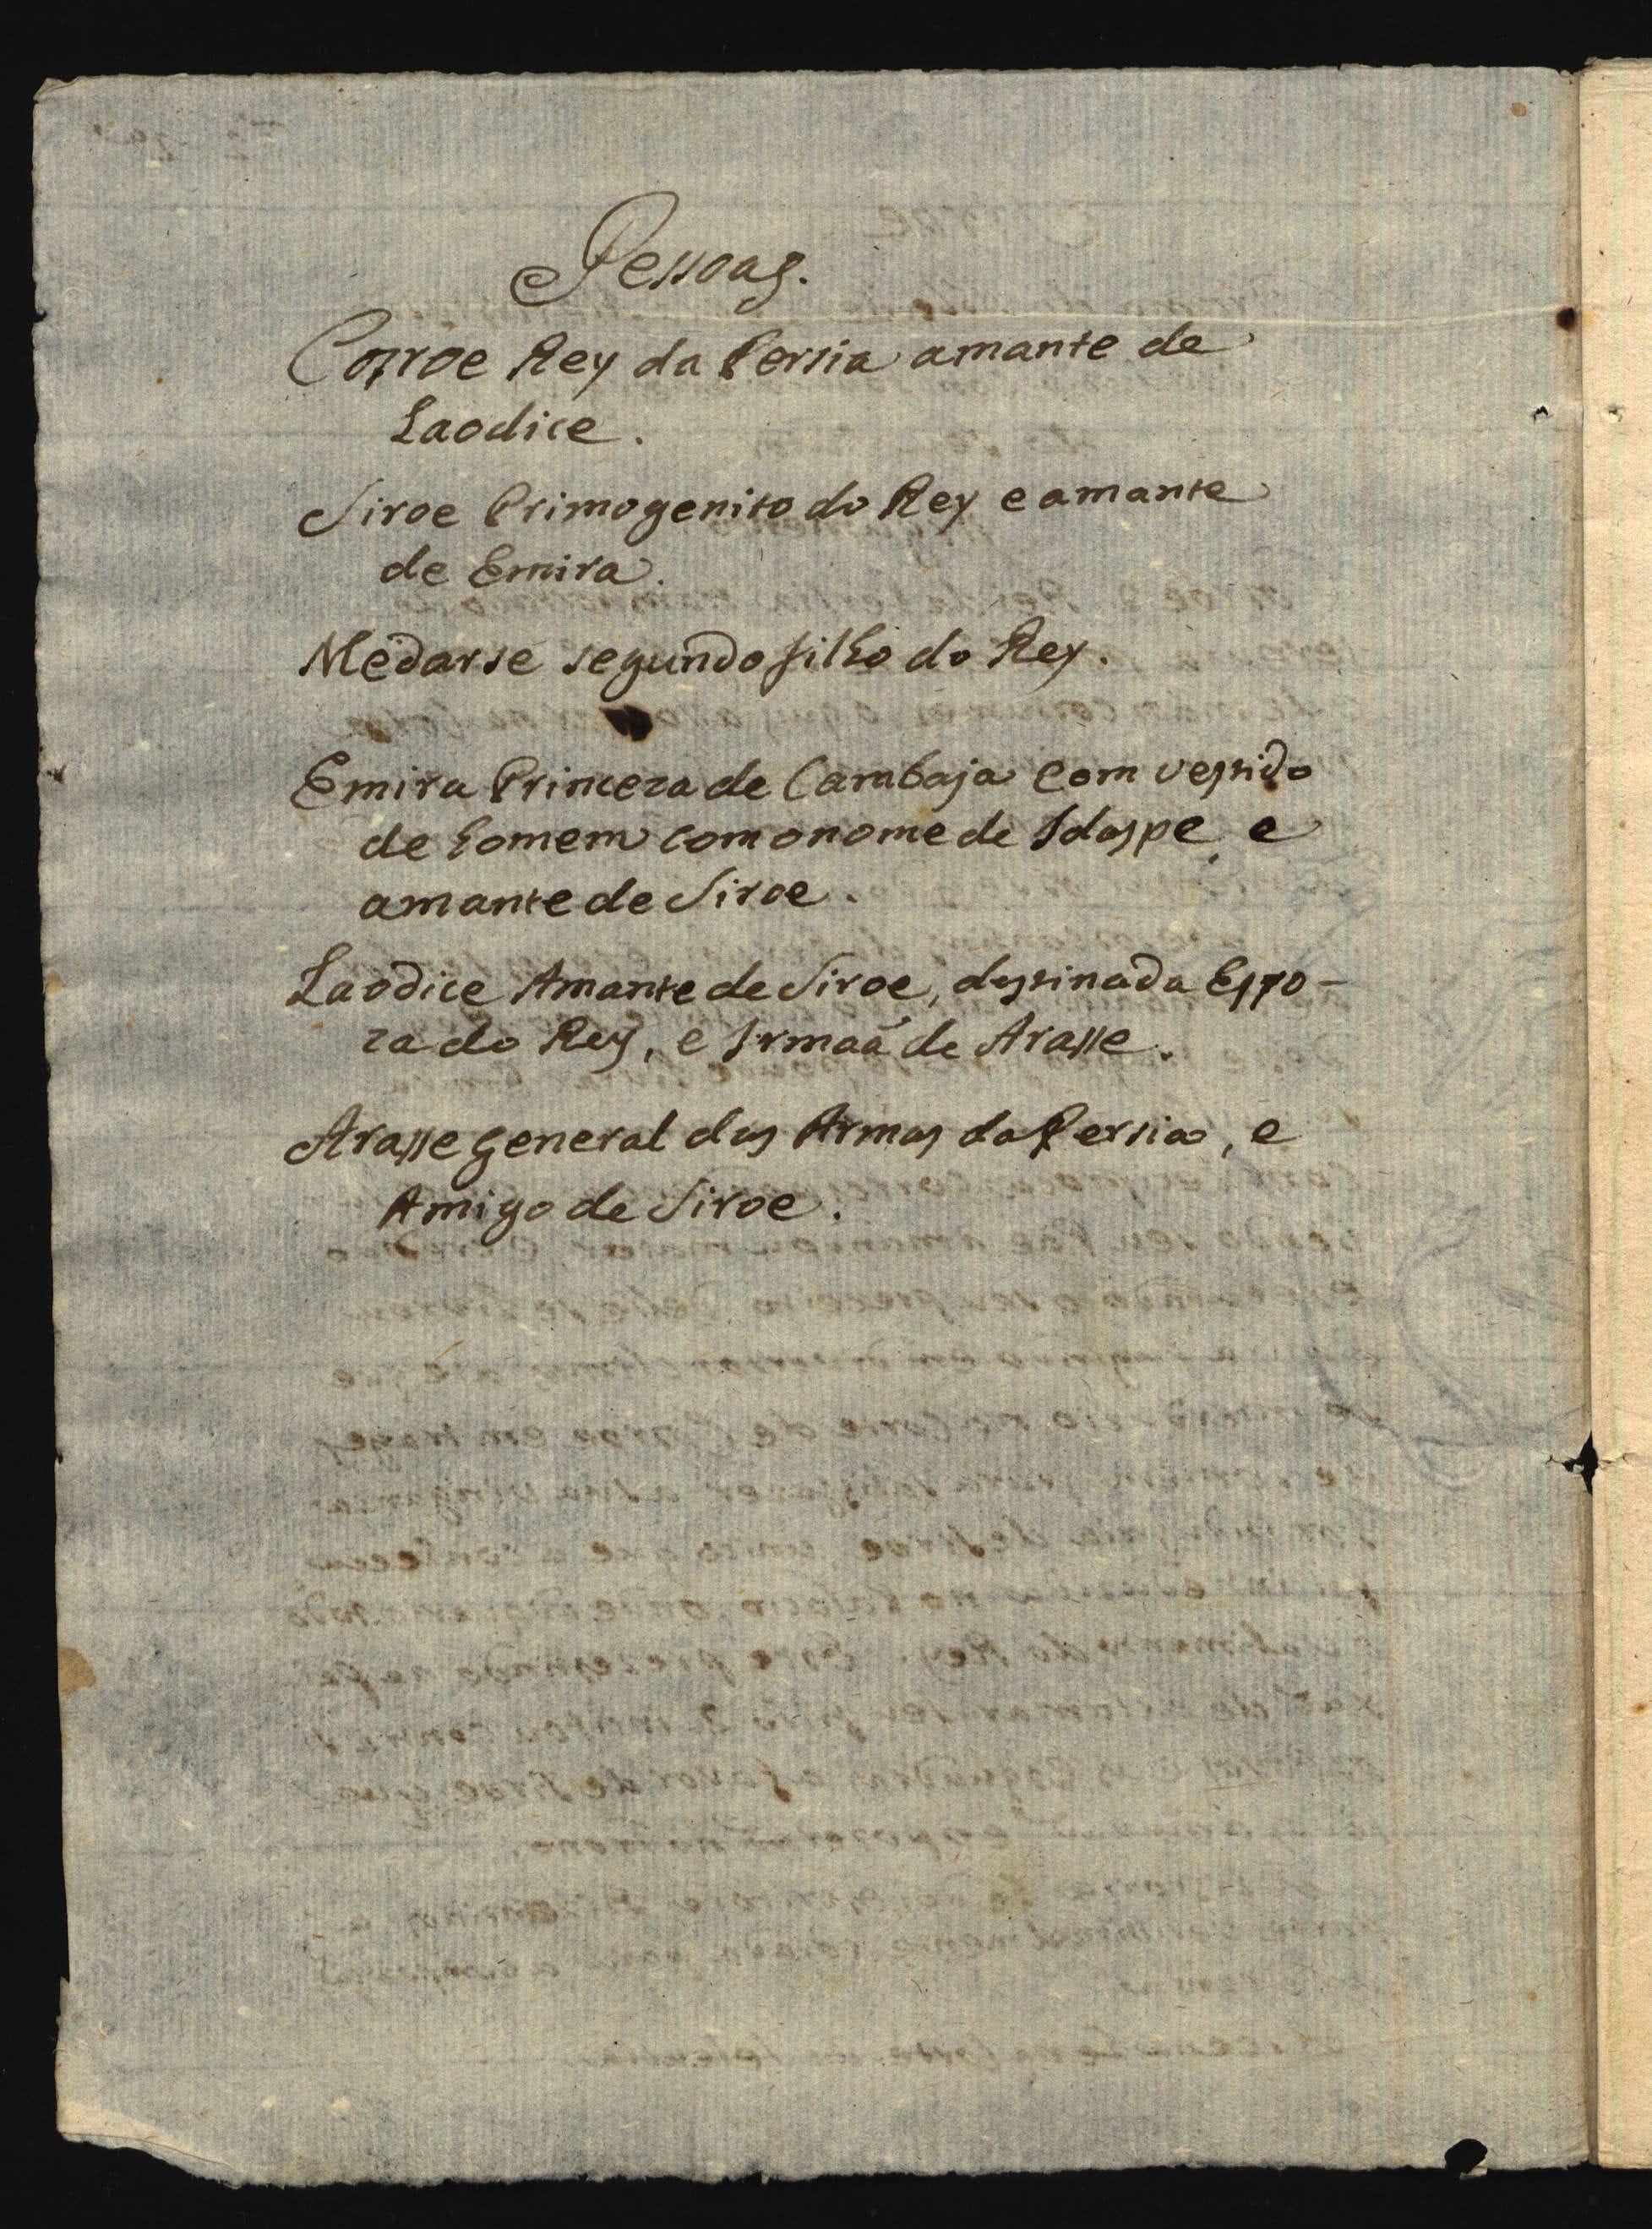 Pessoas.
Cosroe Rey da Persia amante de
Laodice.
Siroe Primogenito do Rey e amante
de Emira.
Medarse segundo filho do Rey.
Emira Princeza de Cambaja com vestido
de homem com o nome de Idaspe, e
amante de Siroe.
Laodice Amante de Siroe, destinada Espo-
za do Rey, e Irmaã de Arasse.
Arasse general das Armas da Persia, e
Amigo de Siroe.